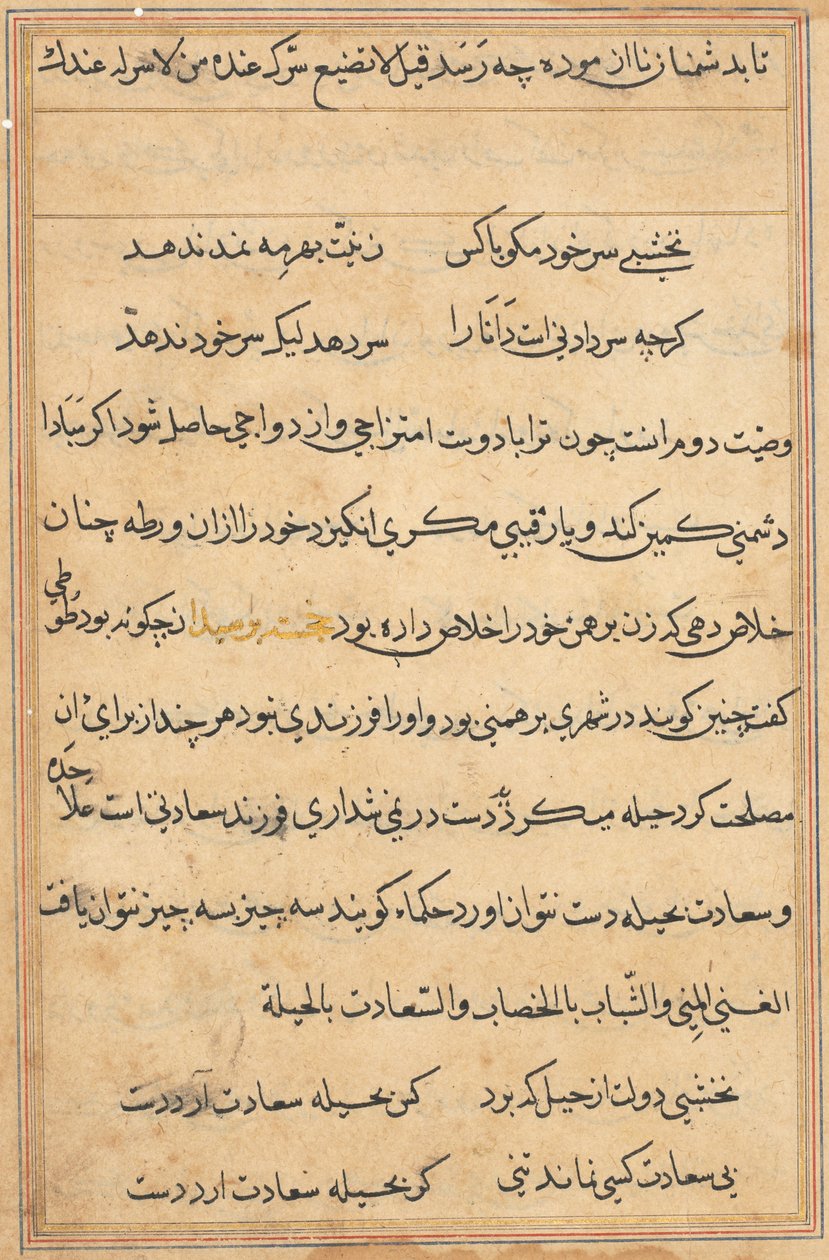 تا بد شمنان نا از موده چه رَسَد قیل لا تضیع سّرک عنده من لا سرله عندك
نخشبی سر خود مکو با کس زنیّت بهرمِه نمد ندهد
کرچه سر دادنی است دَانَا را سر دهد لیک سر خود ندهد
وصیّت دوم اینست چون ترا با دوست امتزاجی و از دواجی حاصل شود اکر مَبَادا
دشمنی کمین کند و یا رقیبی مکری انکیزد خود را ازان ورطه چنان
خلاص دهی که زن برهمن خود را خلاص داده بود خجسته پرسید ان چکونه بود طُوطی
کفت چنین کویند در شهری برهمنی بود و او را فرزندی نبود هر چند از برای ان
مصلحت کرد حیله میکردّ دست در نمی شداری فرزند سعادتی است علاحِدَه
و سعادت بحیله دست نتوان اورد حکماء کویند سه چیز بسه چیز نتوان یافت
الغنی المِنی والشّباب بالخضاب والسّعادت بالحیلة
نخشبی دولت از حیل که برد کس بحیله سعادت آرد دست
بی سعادت کسی نماند تنی کو بحیله سعادت ارد دست